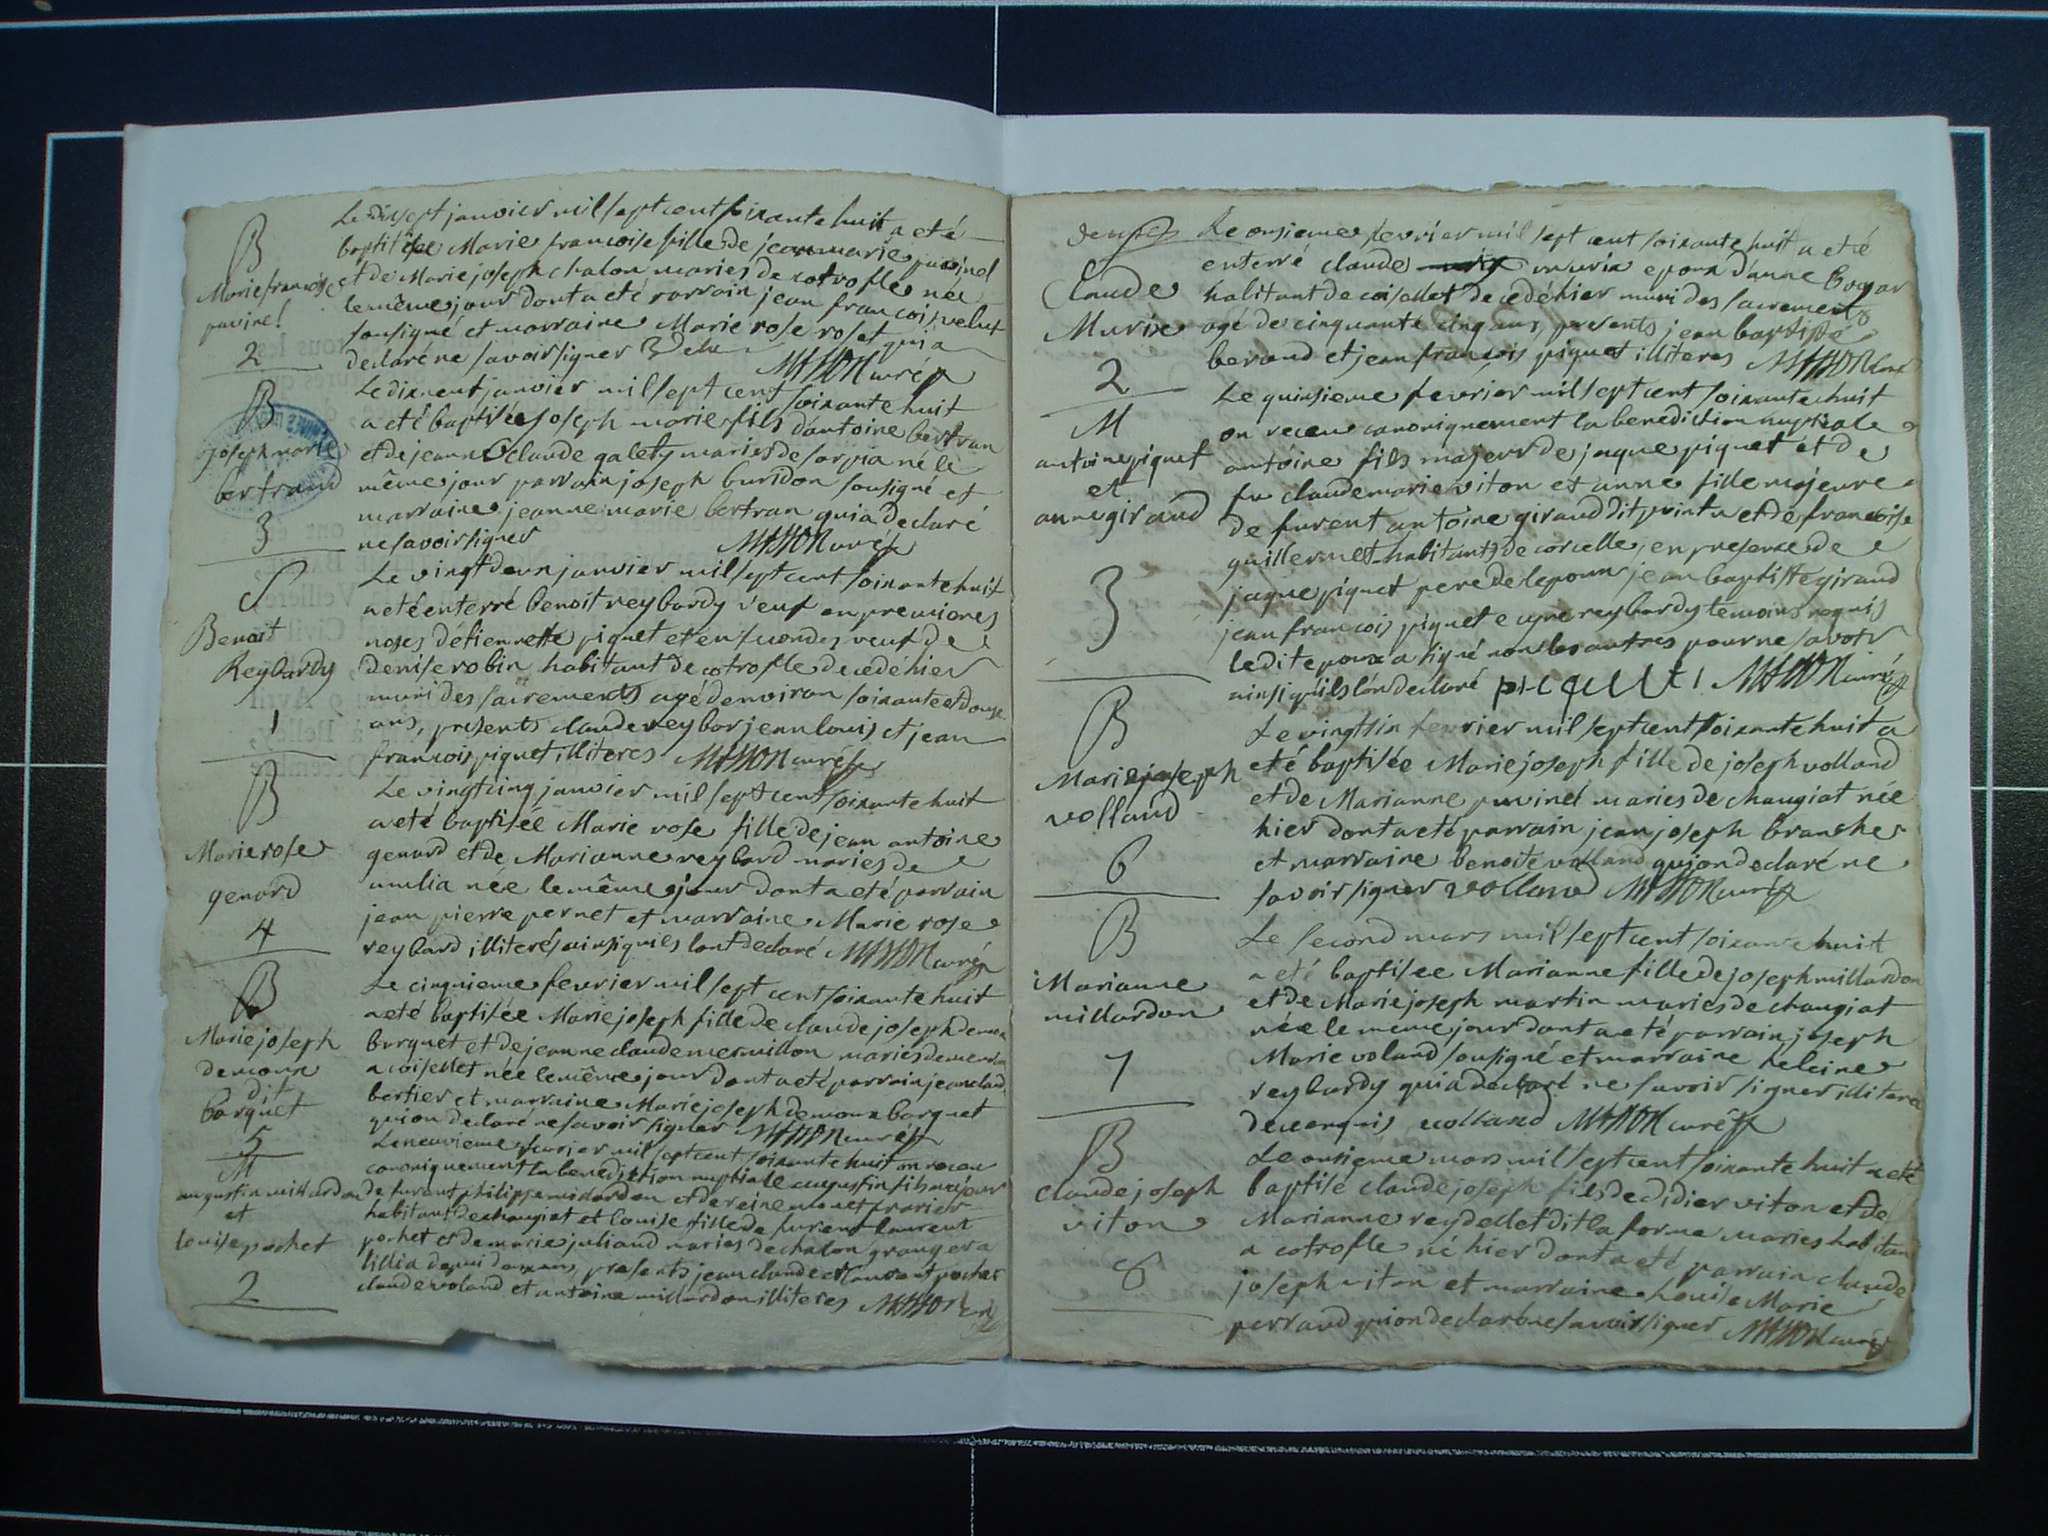 B
Marie francoise
puvinel
2
Le dixsept janvier mil sept cent soixante huit a eté
baptisée Marie francoise fille de jean marie puvinel
et de Marie joseph chalon maries de cotrofle née
le même jour dont a eté parrain jean francois velut
sousigné et marraine Marie rose rosset qui a
declaré ne savoir signer MASSON curé
B
joseph marie
bertrand
3
Le dixneuf janvier mil sept cent soixante huit
a eté baptisé joseph marie fils d'antoine bertran
et de jeanne claude galety maries de sorpia né le
même jour parrain joseph buridon sousigné et
marraine jeanne marie bertran qui a declaré
ne savoir signer MASSON curé
S
Benoit
Reybardy
1
Le vingt deux janvier mil sept cent soixante huit
a eté enterré benoit reybardy veuf en premieres
noses d'etiennette piquet et en secondes veuf de
denise robin habitant de cotrofle decedé hier
muni des sacrements agé d'environ soixante et douse
ans, presents claude reybor jean louis et jean
francois piquet illiteres MASSON curé
B
Marie rose
genord
4
Le vingtcinq janvier mil sept cent soixante huit
a eté baptisée Marie rose fille de jean antoine
genord et de Marianne reybard maries de
née le même jour dont a eté parrain
jean pierre pernet et marraine Marie rose
reybard illiterés ainsi quils l'ont declaré MASSON curé
B
Marie joseph
demoux
dit
borquet
5
Le cinquieme fevrier mil sept cent soixante huit
a eté baptisée Marie joseph fille de claude joseph demoux
borquet et de jeanne claude mermillon maries demeuran
a coisellet née le même jour dont a eté parrain jean claude
bertier et marraine Marie joseph demoux borquet
qui on declaré ne savoir signer MASSON curé
M
augustin millardon
et
louise pochet
2
Le neuvieme fevrier mil sept cent soixante huit on receu
canoniquement la benediction nuptiale augustin fils majeur
de furent philippe millardon et de reine monet frarier
habitant de changiat et louise fille de furent laurent
pochet et de marie juliand maries de chalon granger a
lilia depui deux ans, presents jean claude et laurent pochet
claude voland et antoine millardon illiteres MASSON curé
Claude
Murix
2
Le onsieme fevrier mil sept cent soixante huit a eté
enterré claude murix epoux d'anne bogar
habitant de coisellet decedé hier muni des sacrements
agé de cinquante cinq ans, presents jean baptiste
beraud et jean françois piquet illiteres MASSON curé
M
antoine piquet
et
anne giraud
3
Le quinsieme fevrier mil sept cent soixante huit
on receu canoniquement la benediction nuptiale
antoine fils majeur de jaque piquet et de
fu claude marie viton et anne fille majeure
de furent antoine giraud dit pointu et de francoise
guillermet habitants de corcelle, en presence de
jaque piquet pere de lepoux jean baptiste giraud
jean francois piquet e cyne reybardy temoins requis
ledit epoux a signé non les autres pour ne savoir
ainsi quils lon declaré piquet MASSON curé
B
Marie joseph
volland
6
Le vingtsix fevrier mil sept cent soixante huit a
eté baptisée Marie joseph fille de joseph volland
et de Marianne puvinel maries de changiat née
hier dont a eté parrain jean joseph branche
et marraine benoite volland qui on declaré ne
savoir signer volland MASSON curé
B
Marianne
millardon
7
Le second mars mil sept cent soixante huit
a eté baptisee Marianne fille de joseph millardon
et de Marie joseph martin maries de changiat
née le meme jour dont a eté parrain joseph
Marie voland sousigné et marraine heleine
reybardy qui a declaré ne savoir signer illiterée
de ce enquis volland MASSON curé
B
claude joseph
viton
8
Le onsieme mars mil sept cent soixante huit a eté
baptisé claude joseph fils de didier viton et de
Marianne reydellet dit la forme maries habitan
a cotrofle né hier dont a eté parrain claude
joseph viton et marraine Louise Marie
perraud qui on declaré ne savoir signer MASSON curé